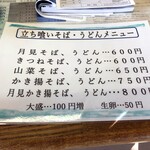 立ち喰いそば・うどんメニュー
月見そば、うどん…600円
きつねそば、うどん…600円
山菜そば、うどん…650円
かき揚そば、うどん…750円
月見かき揚そば、うどん…800円
大盛…100円増 生卵…50円